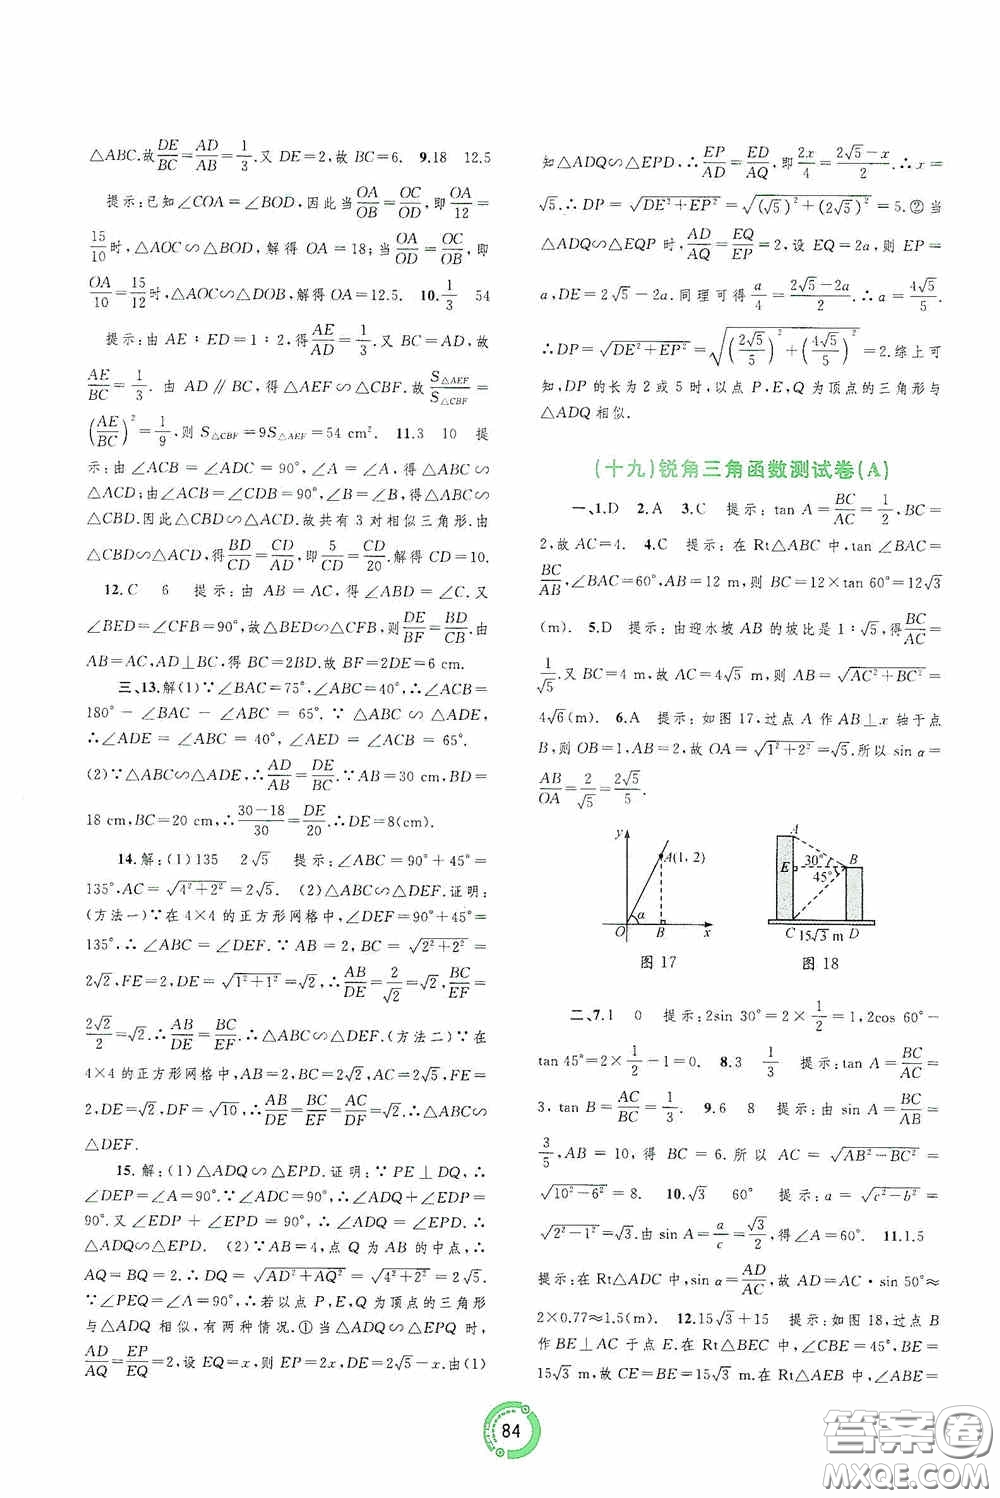 △ABC.故DE/BC=AD/AB=1/3.又 DE=2,故 BC=6. 9.18 12.5
提示:已知∠COA=∠BOD,因此当OA/OB=OC/OD,即OA/12=
15/10时,△AOC∽△BOD,解得 OA=18;当OA/OD=OC/OB,即
OA/10=15/12时,△AOC∽△DOB,解得OA=12.5. 10.1/3 54
提示:由 AE∶ED=1∶2,得AE/AD=1/3.又 BC=AD,故
AE/BC=1/3. 由 AD∥BC,得△AEF∽△CBF.故S△AEF/S△CBF=
(AE/BC)²=1/9,则 S△CBF=9S△AEF=54 cm². 11.3 10 提
示:由∠ACB=∠ADC=90°,∠A=∠A,得△ABC∽
△ACD;由∠ACB=∠CDB=90°,∠B=∠B,得△ABC∽
△CBD.因此△CBD∽△ACD.故共有 3 对相似三角形.由
△CBD∽△ACD,得BD/CD=CD/AD,即5/CD=CD/20.解得 CD=10.
12.C 6 提示:由 AB=AC,得∠ABD=∠C.又
∠BED=∠CFB=90°,故△BED∽△CFB,则DE/BF=BD/CB.由
AB=AC,AD⊥BC,得 BC=2BD.故 BF=2DE=6 cm.
三、13.解(1)∵∠BAC=75°,∠ABC=40°,∴∠ACB=
180°-∠BAC-∠ABC=65°.∵△ABC∽△ADE,
∴∠ADE=∠ABC=40°,∠AED=∠ACB=65°.
(2)∵△ABC∽△ADE,∴AD/AB=DE/BC.∵AB=30 cm,BD=
18 cm,BC=20 cm,∴(30-18)/30=DE/20.∴DE=8(cm).
14.解:(1)135 2√5 提示:∠ABC=90°+45°=
135°,AC=√(4²+2²)=2√5. (2)△ABC∽△DEF.证明:
(方法一)∵在 4×4 的正方形网格中,∠DEF=90°+45°=
135°,∴∠ABC=∠DEF.∵AB=2,BC=√(2²+2²)=
2√2,FE=2,DE=√(1²+1²)=√2.∴AB/DE=2/√2=√2,BC/EF=
2√2/2=√2.∴AB/DE=BC/EF.∴△ABC∽△DEF.(方法二)∵在
4×4 的正方形网格中,AB=2,BC=2√2,AC=2√5,FE=
2,DE=√2,DF=√10,∴AB/DE=BC/EF=AC/DF=√2.∴△ABC∽
△DEF.
15.解:(1)△ADQ∽△EPD.证明:∵PE⊥DQ,∴
∠DEP=∠A=90°.∵∠ADC=90°,∴∠ADQ+∠EDP=
90°.又∠EDP+∠EPD=90°,∴∠ADQ=∠EPD.∴
△ADQ∽△EPD. (2)∵AB=4,点 Q 为 AB 的中点,∴
AQ=BQ=2.∴DQ=√(AD²+AQ²)=√(4²+2²)=2√5.
∵∠PEQ=∠A=90°,∴若以点 P,E,Q 为顶点的三角形
与△ADQ 相似,有两种情况.①当△ADQ∽△EPQ 时,
AD/AQ=EP/EQ=2,设 EQ=x,则 EP=2x,DE=2√5-x.由(1)
知△ADQ∽△EPD,∴EP/AD=ED/AQ,即2x/4=(2√5-x)/2.∴x=
√5.∴DP=√(DE²+EP²)=√((√5)²+(2√5)²)=5.②当
△ADQ∽△EQP 时,AD/AQ=EQ/EP=2,设 EQ=2a,则 EP=
a,DE=2√5-2a.同理可得a/4=(2√5-2a)/2.∴a=4√5/5.
∴DP=√(DE²+EP²)=√((2√5/5)²+(4√5/5)²)=2.综上可
知,DP 的长为 2 或 5 时,以点 P,E,Q 为顶点的三角形与
△ADQ 相似.
(十九)锐角三角函数测试卷(A)
一、1.D 2.A 3.C 提示:tan A=BC/AC=1/2,BC=
2,故 AC=4. 4.C 提示:在 Rt△ABC 中,tan∠BAC=
BC/AB,∠BAC=60°,AB=12 m,则 BC=12×tan 60°=12√3
(m). 5.D 提示:由迎水坡 AB 的坡比是 1∶√5,得BC/AC=
1/√5.又 BC=4 m,故 AC=4√5 m,则 AB=√(AC²+BC²)=
4√6(m). 6.A 提示:如图 17,过点 A 作 AB⊥x 轴于点
B,则 OB=1,AB=2,故 OA=√(1²+2²)=√5.所以 sin α=
AB/OA=2/√5=2√5/5.
y A(1,2) α O B x
图 17
A E 30° B 45° C 15√3 m D
图 18
二、7.1 0 提示:2sin 30°=2×1/2=1,2cos 60°-
tan 45°=2×1/2-1=0. 8.3 1/3 提示:tan A=BC/AC=
3,tan B=AC/BC=1/3. 9.6 8 提示:由 sin A=BC/AB=
3/5,AB=10,得 BC=6.所以 AC=√(AB²-BC²)=
√(10²-6²)=8. 10.√3 60° 提示:a=√(c²-b²)=
√(2²-1²)=√3.由 sin A=a/c=√3/2,得∠A=60°. 11.1.5
提示:在 Rt△ADC 中,sin α=AD/AC,故 AD=AC·sin 50°≈
2×0.77≈1.5(m) 12.15√3+15 提示:如图 18,过点 B
作 BE⊥AC 于点 E.在 Rt△BEC 中,∠CBE=45°,BE=
15√3 m,故 CE=BE=15√3 m.在 Rt△AEB 中,∠ABE=
84
答案圈
MXQE.COM